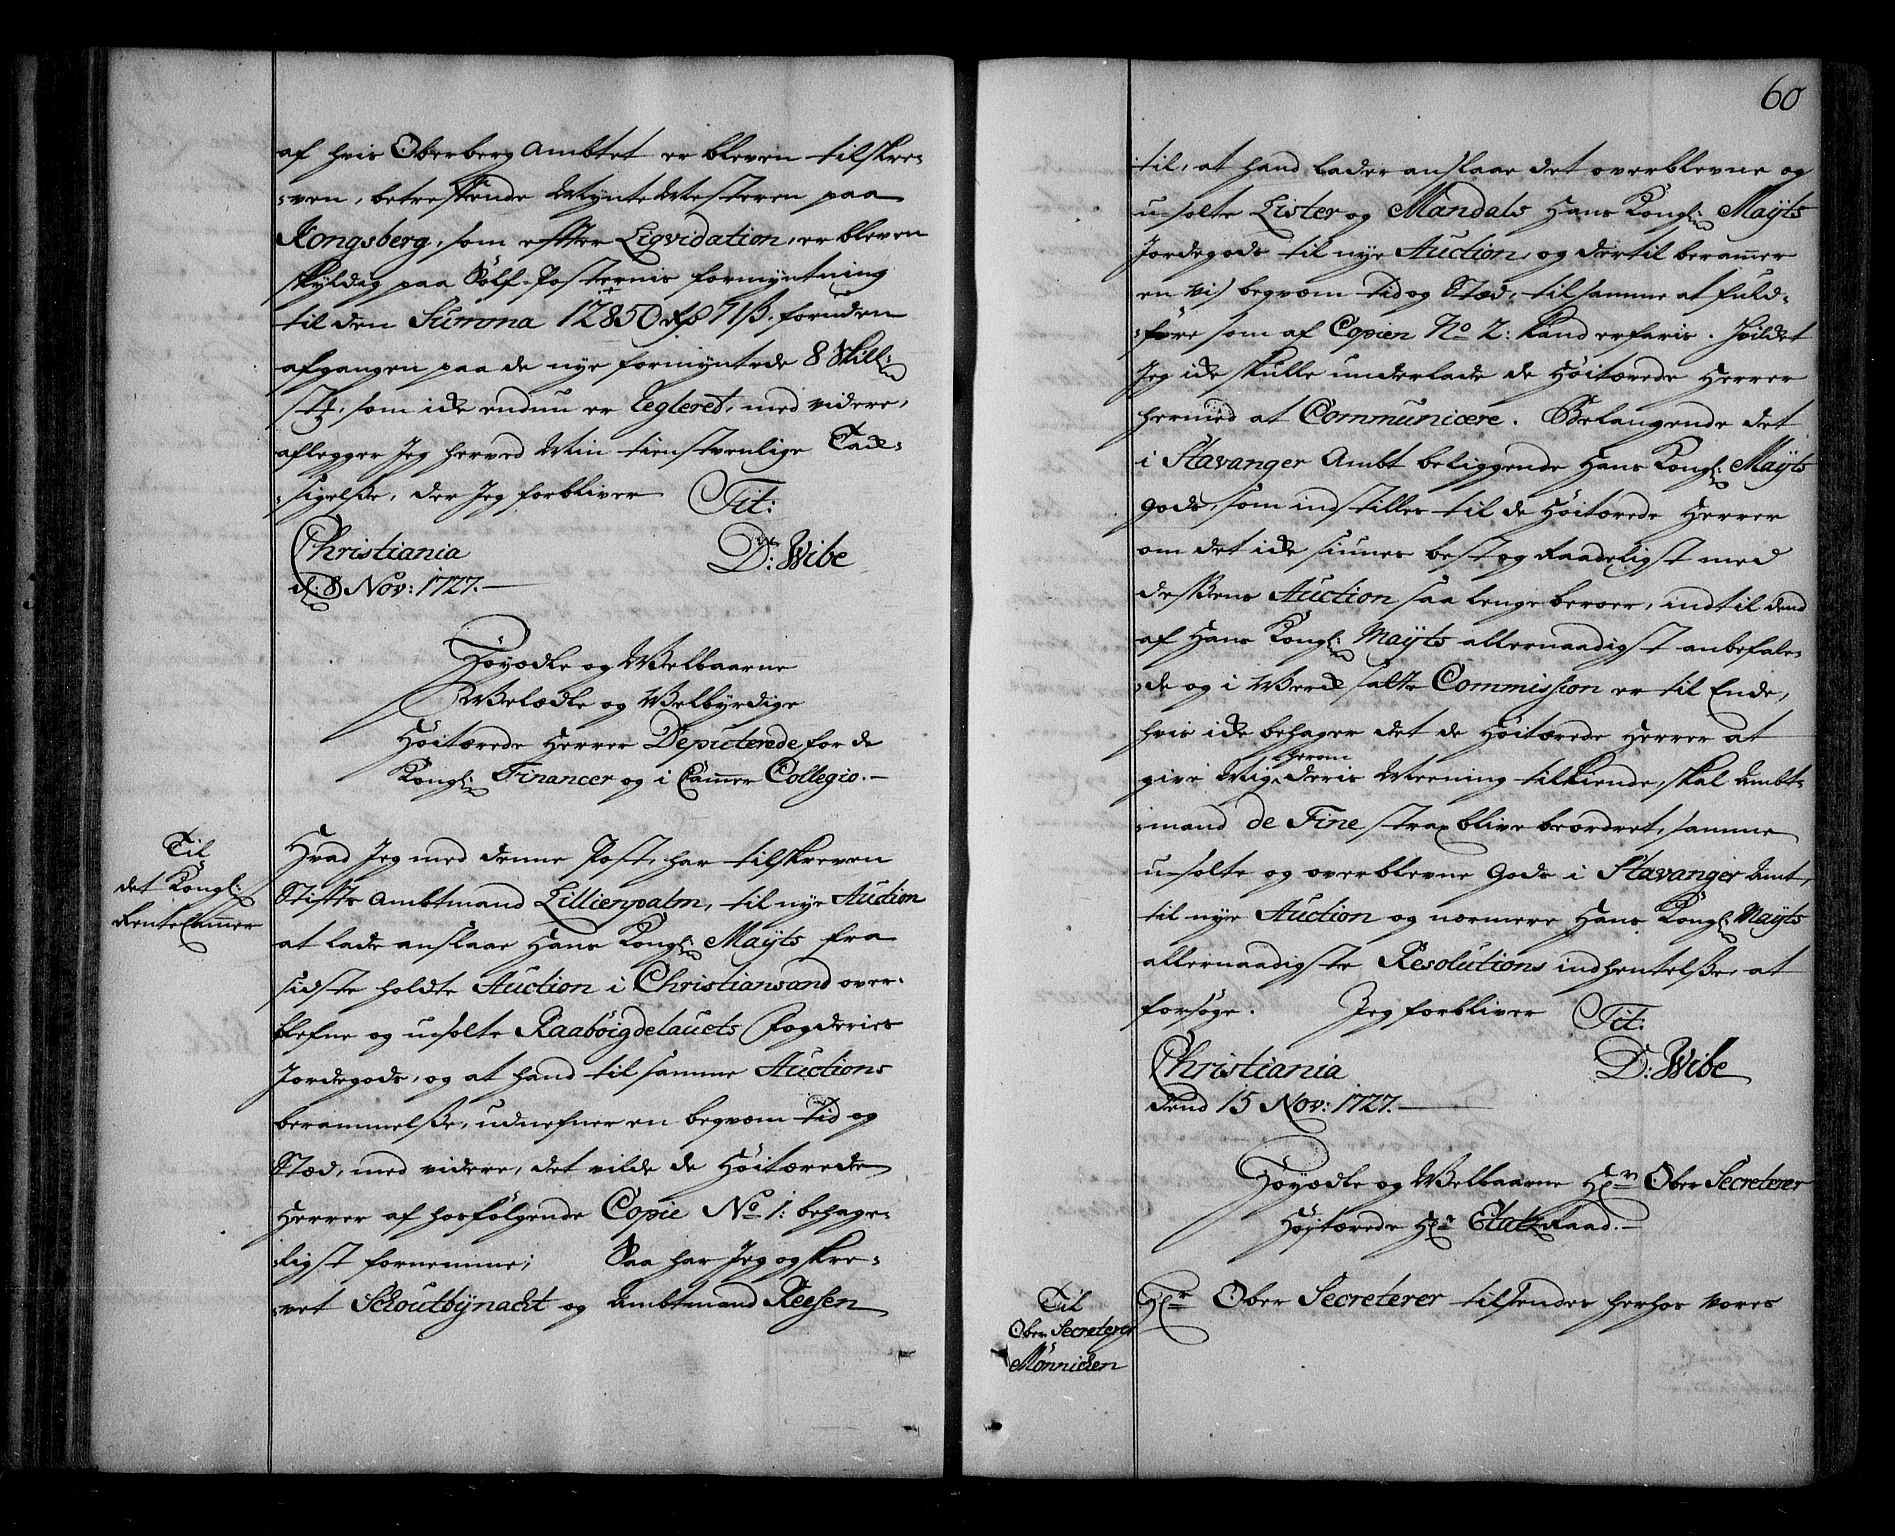 af hvis Oberberg Ambtet er bleven tilskre-
-ven, betreffende MynteMesteren paa
Kongsberg, som effter Liqvidation, er bleven
skyldig paa Sølf-Posternis formyntning
til den Summa 12850 rdr 71 ß. foruden
afgangen paa de nye formyntede 8 Skill:
st:, som icke endnu er Eegleret, med videre,
aflegger Jeg herved Min tienstvenlige Tack-
-sigelße, der Jeg forbliver Tit:
Christiania D: Wibe
d: 8 Nov: 1727.
Høyædle og Welbaarne
Welædle og Welbyrdige
Høitærede Herrer Deputerede for de
Kongl: Financer og i Cammer Collegio.
Til
det Kongl:
RenteCammer
Hvad Jeg med denne Post, har tilskreven
Stifts Ambtmand Lillienpalm, til nye Auction
at lade anslaae Hans Kongl: Mayts fra
sidste holdte Auction i Christiansand over-
blefne og usolte Raabøigdelauets Fogderies
Jordegods, og at hand til samme Auctions
berammelße, udnefner en beqvem Tid og
Stæd, med videre, det vilde de Høitærede
Herrer af hosfølgende Copie No 1: behage-
-ligst fornemme; Saa har Jeg og skre-
-vet Schoutbynacht og Ambtmand Reesen
60
til, at hand lader anslaae det overblevne og
u-solte Lister og Mandals Hans Kongl: Mayts
Jordegods til nye Auction, og dertil berammer
en vis beqvem tid og Stæd, til samme at fuld-
-føre som af Copien No 2: kand erfaris. Hvilcket
Jeg icke skulle underlade de Høitærede Herrer
hermed at Communicere. Belangende det
i Stavanger Ambt beliggende Hans Kongl: Mayts
Gods, som indstilles til de Høitærede Herrer
om det icke siunes best og Raadeligst med
deßens Auction saa lenge beroer, indtil dend
af Hans Kongl: Mayts allernaadigst anbefale-
-de og i Werck satte Commission er til Ende,
hvis icke behager det de Høitærede Herrer at
give Mig herom deris Meening tilkiende, skal Ambt-
-mand de Fine strax blive beordret, samme
u-solte og overblevne Gods i Stavanger Amt,
til nye Auction og nærmere Hans Kongl: Mayts
allernaadigste Resolutions indhentelße at
forsøge. Jeg forbliver Tit:
Christiania D: Wibe
dend 15 Nov: 1727.
Høyædle og Welbaarne Hr Ober Secreterer
Høytærede Hr Etatz Raad.
Til
Ober Secreterer
Mønnichen
Hr Ober Secreterer tilsendes herhos vores